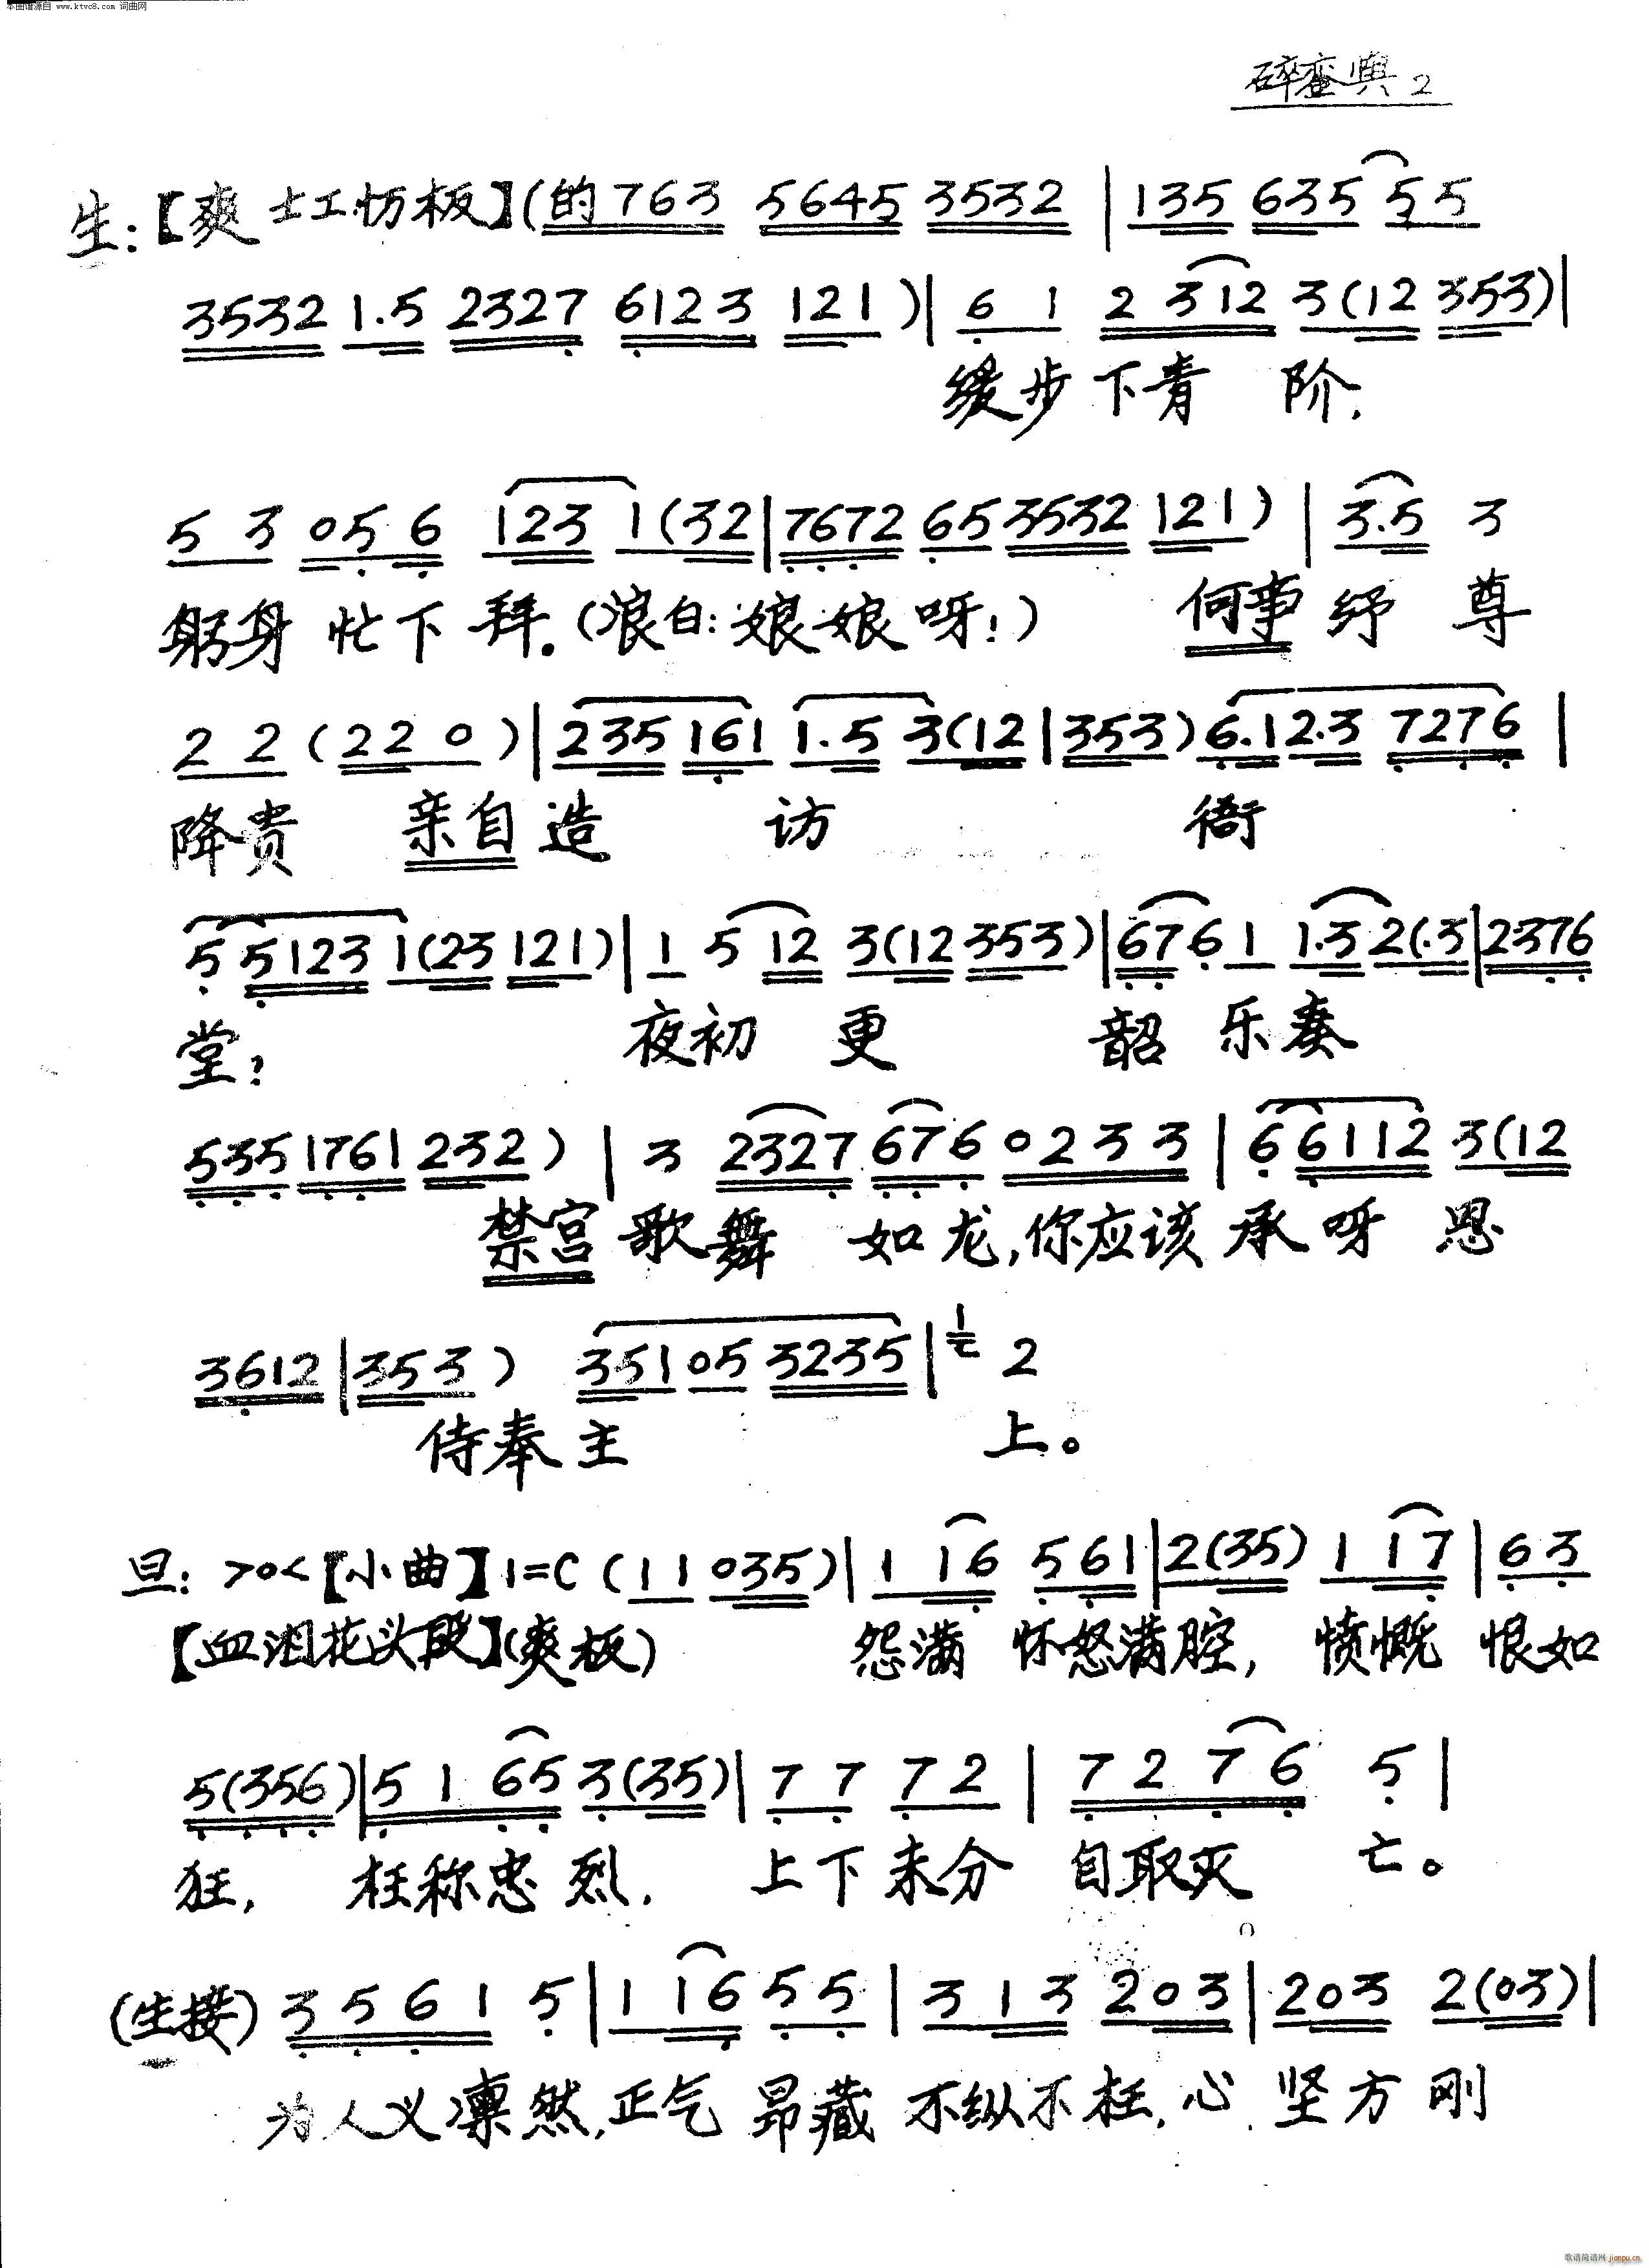 本曲谱源自 www.ktvc8.com 词曲网
碎銮舆 2
生:【爽士工切板】(的763 5645 3532 | 135 635 55
3532 1.5 2327 6123 121 )| 6 1 2 312 3(12 353)|
缓步下青 阶,
5 3 056 123 1(32|7672 65 3532 121) | 3.5 3
躬身 忙下 拜.(浪白:娘娘呀!) 何事 纡 尊
2 2 (22 0 )|235 161 1.5 3(12|353) 6.12.3 7276 |
降贵 亲自造 访 衙
5 5123 1(23 121)| 1 5 12 3(12 353)|676 1 1.3 2(.3|2376
堂? 夜初 更 韶 乐奏
535 1761 232 ) | 3 2327 676 0233 | 66112 3(12
禁宫 歌舞 如龙,你应该 承呀 恩
3612|353 ) 35105 3235 |1=서 2
侍奉主 上。
旦: >0<【小曲】1=C (11 035)|1 16 561|2(35) 1 17 |63
【血泪花头段】(爽板) 怨满 怀怒满腔, 愤慨 恨如
5(356)|51 65 3(35)|7 7 72 | 72 76 5 |
狂, 枉称忠烈. 上下未分 自取灭 亡。
(生接) 3561 5|1 16 55 | 3 13 203|203 2(03)|
为人义凛然,正气 昂藏 不纵不枉,心 坚方刚
歌谱简谱网 jianpu.cn